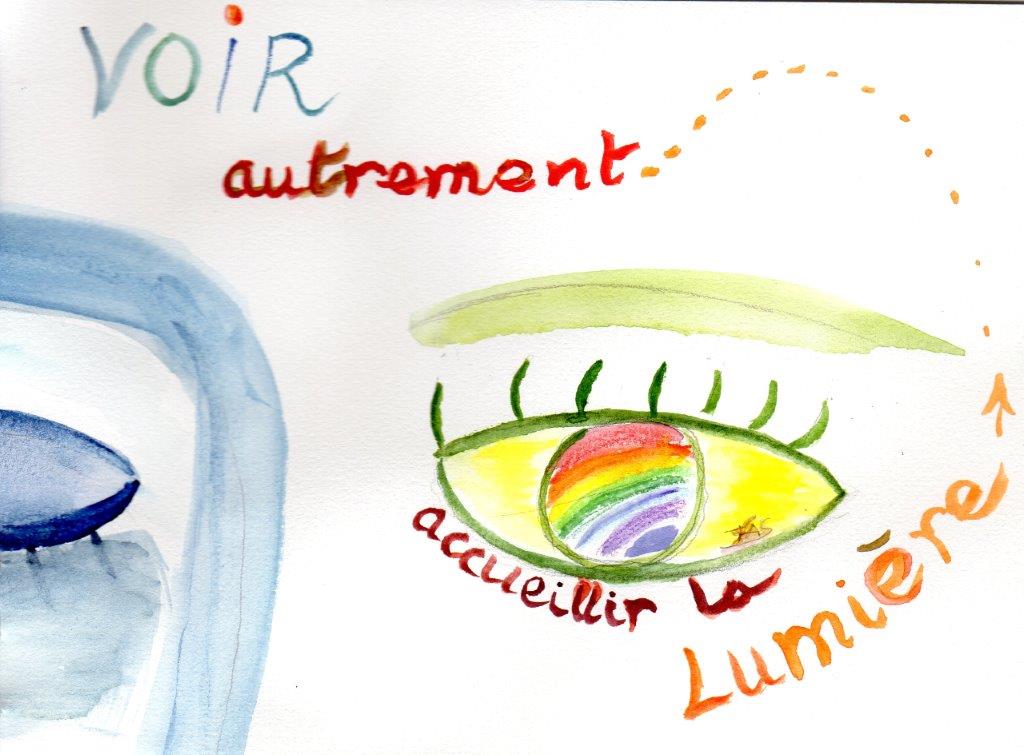 VOIR
autrement
accueillir la
Lumière